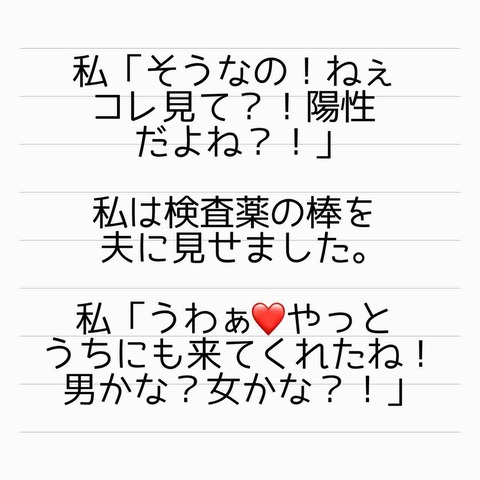 私「そうなの！ねぇ
コレ見て？！陽性
だよね？！」
私は検査薬の棒を
夫に見せました。
私「うわぁ❤️やっと
うちにも来てくれたね！
男かな？女かな？！」